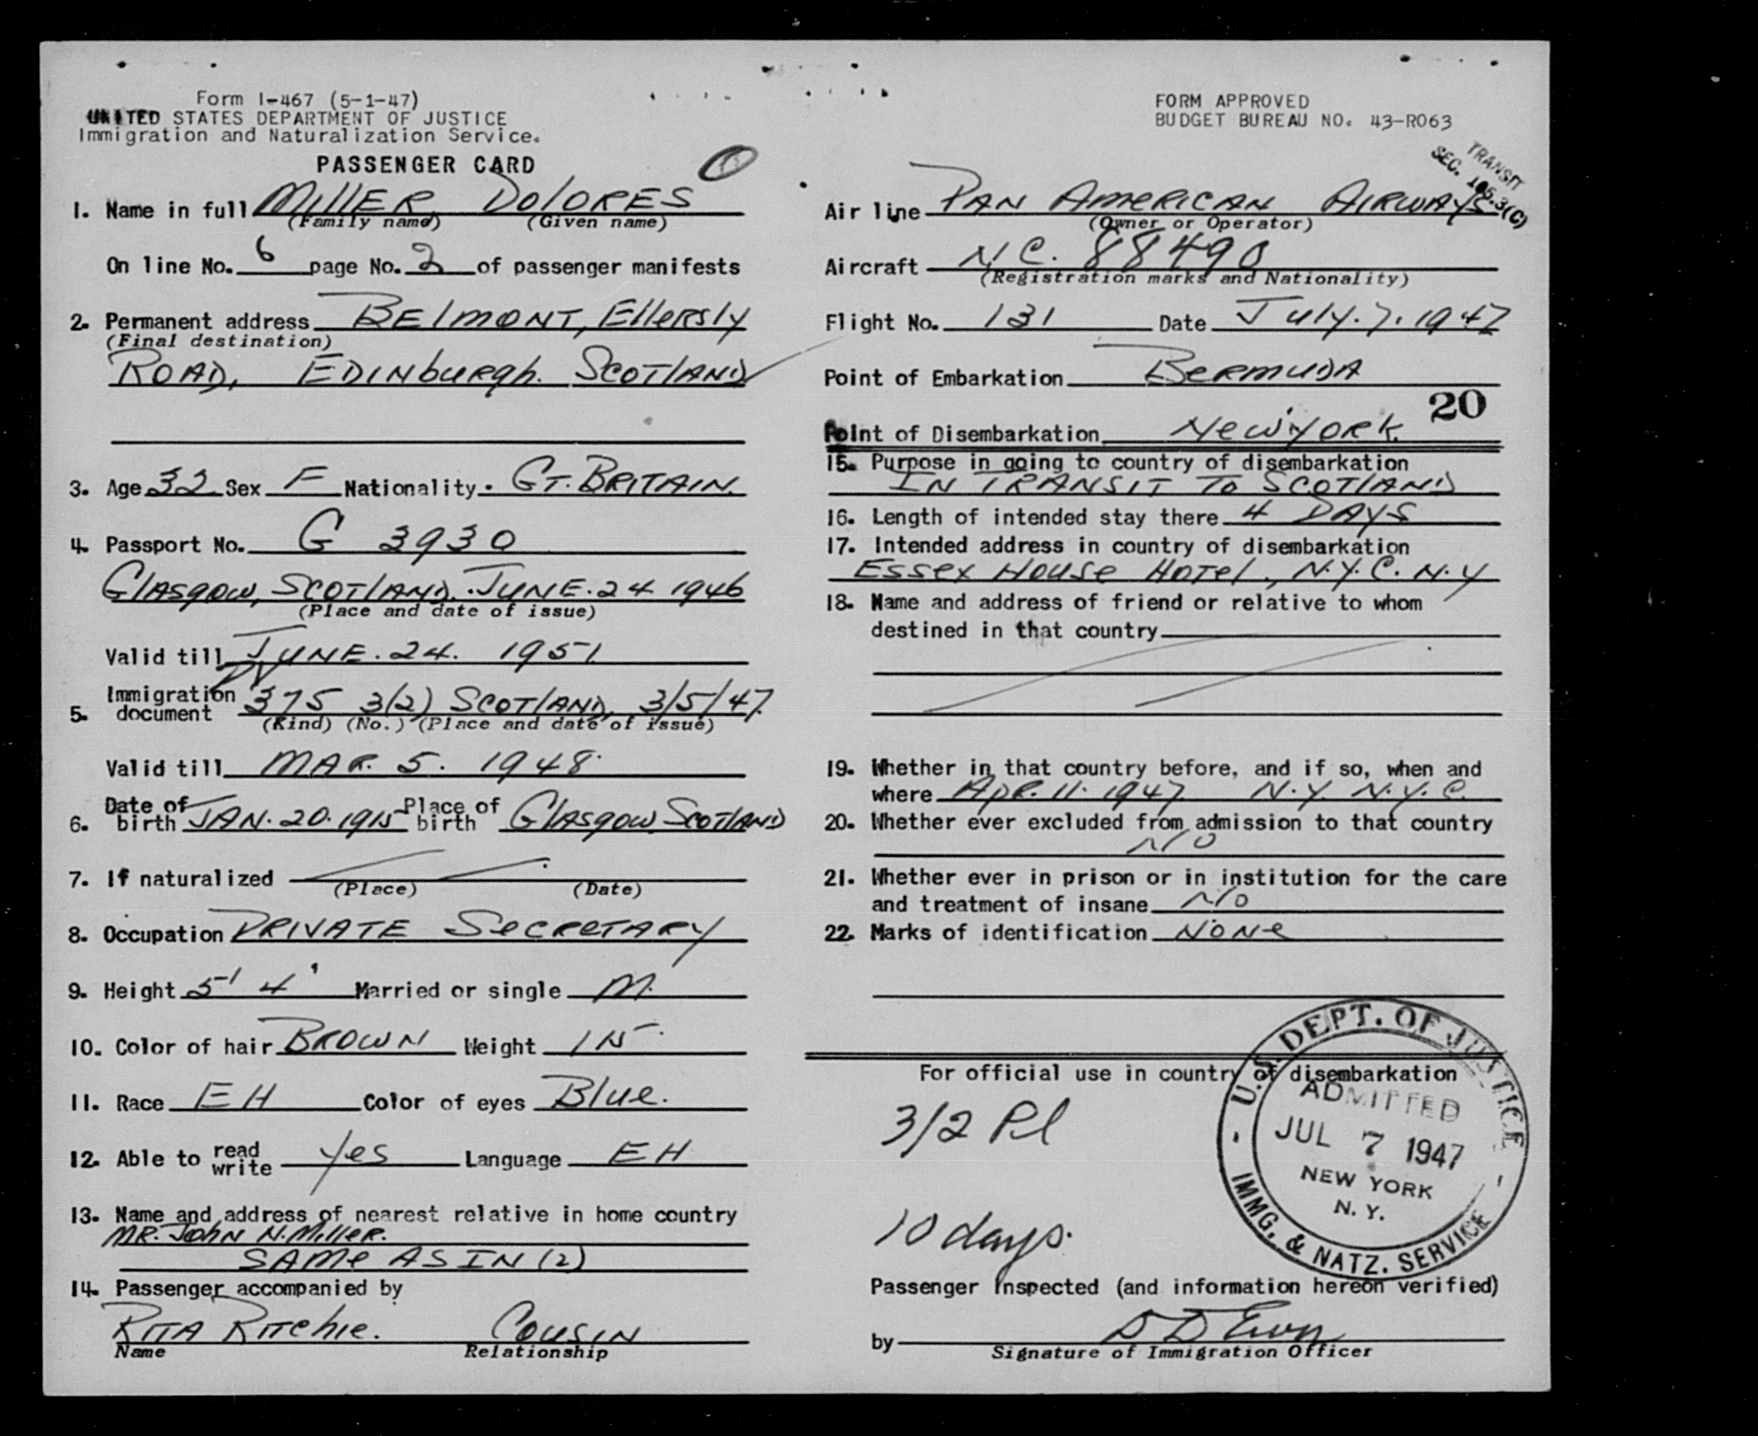 Form I-467 (5-1-47)
UNITED STATES DEPARTMENT OF JUSTICE
Immigration and Naturalization Service.
PASSENGER CARD
1. Name in full MILLER DOLORES
(Family name) (Given name)
On line No. 6 page No. 2 of passenger manifests
2. Permanent address BELMONT, Ellersly
(Final destination)
ROAD, EDINburgh. SCOTLAND
3. Age 32 Sex F Nationality. GT. BRITAIN.
4. Passport No. G 3930
GLASgow, SCOTLAND. JUNE. 24 1946
(Place and date of issue)
Valid till JUNE. 24. 1951
5. Immigration document 375 3(2) SCOTLAND, 3/5/47.
(Kind) (No.) (Place and date of issue)
Valid till MAR. 5. 1948.
6. Date of birth JAN. 20. 1915 Place of birth GLASgow SCOTLAND
7. If naturalized
(Place) (Date)
8. Occupation PRIVATE SECRETARY
9. Height 5' 4' Married or single M.
10. Color of hair BROWN Weight 115.
11. Race EH Color of eyes Blue.
12. Able to read write Yes Language EH
13. Name and address of nearest relative in home country
MR. John N. Miller.
SAME AS IN (2)
14. Passenger accompanied by
RITA RITCHIE. COUSIN
Name Relationship
FORM APPROVED
BUDGET BUREAU NO. 43-R063
TRANSIT
SEC. 105.3(C)
Air line PAN AMERICAN AIRWAYS
(Owner or Operator)
Aircraft N.C. 88490
(Registration marks and Nationality)
Flight No. 131 Date July. 7. 1947
Point of Embarkation BERMUDA
20
Point of Disembarkation New York.
15. Purpose in going to country of disembarkation
IN TRANSIT TO SCOTLAND
16. Length of intended stay there 4 DAYS
17. Intended address in country of disembarkation
ESSEX HOUSE HOTEL, N.Y.C. N.Y
18. Name and address of friend or relative to whom
destined in that country
19. Whether in that country before, and if so, when and
where Apr. 11. 1947 N.Y. N.Y.C.
20. Whether ever excluded from admission to that country
NO
21. Whether ever in prison or in institution for the care
and treatment of insane NO
22. Marks of identification NONE
For official use in country of disembarkation
3/2 Pl
10 days.
U.S. DEPT. OF JUSTICE
ADMITTED
JUL 7 1947
NEW YORK
N. Y.
IMMG. & NATZ. SERVICE
Passenger Inspected (and information hereon verified)
by
Signature of Immigration Officer